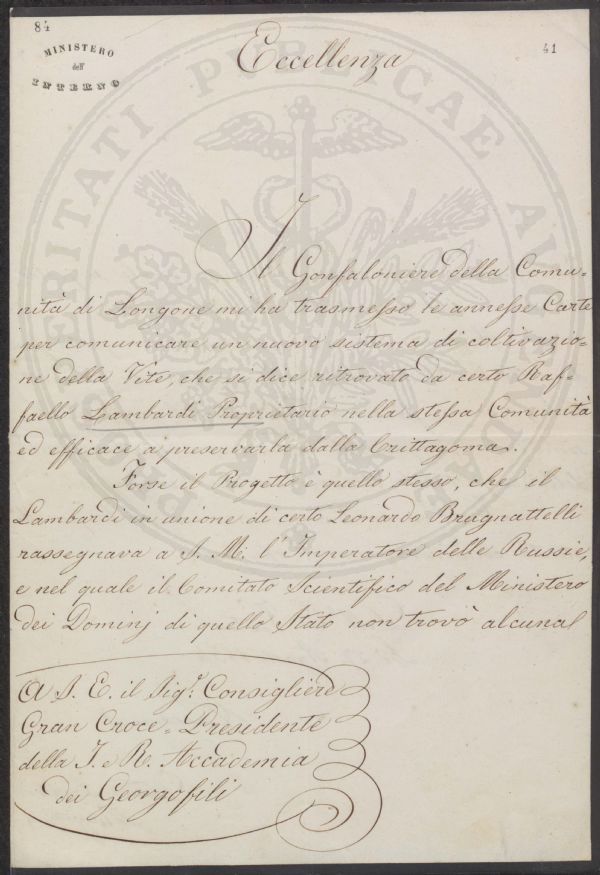 84
MINISTERO
dell'
INTERNO
41
Eccellenza
Il Gonfaloniere della Comu-
nità di Longone mi ha trasmesso le annesse Carte
per comunicare un nuovo sistema di coltivazio-
ne della Vite, che si dice ritrovato da certo Raf-
faello Lambardi Proprietario nella stessa Comunità
ed efficace a preservarla dalla Crittagoma.
Forse il Progetto è quello stesso, che il
Lambardi in unione di certo Leonardo Brugnattelli
rassegnava a S. M. l'Imperatore delle Russie,
e nel quale il Comitato Scientifico del Ministero
dei Dominj di quello Stato non trovò alcuna
A S. E. il Sigr. Consigliere
Gran Croce = Presidente
della I. e R. Accademia
dei Georgofili